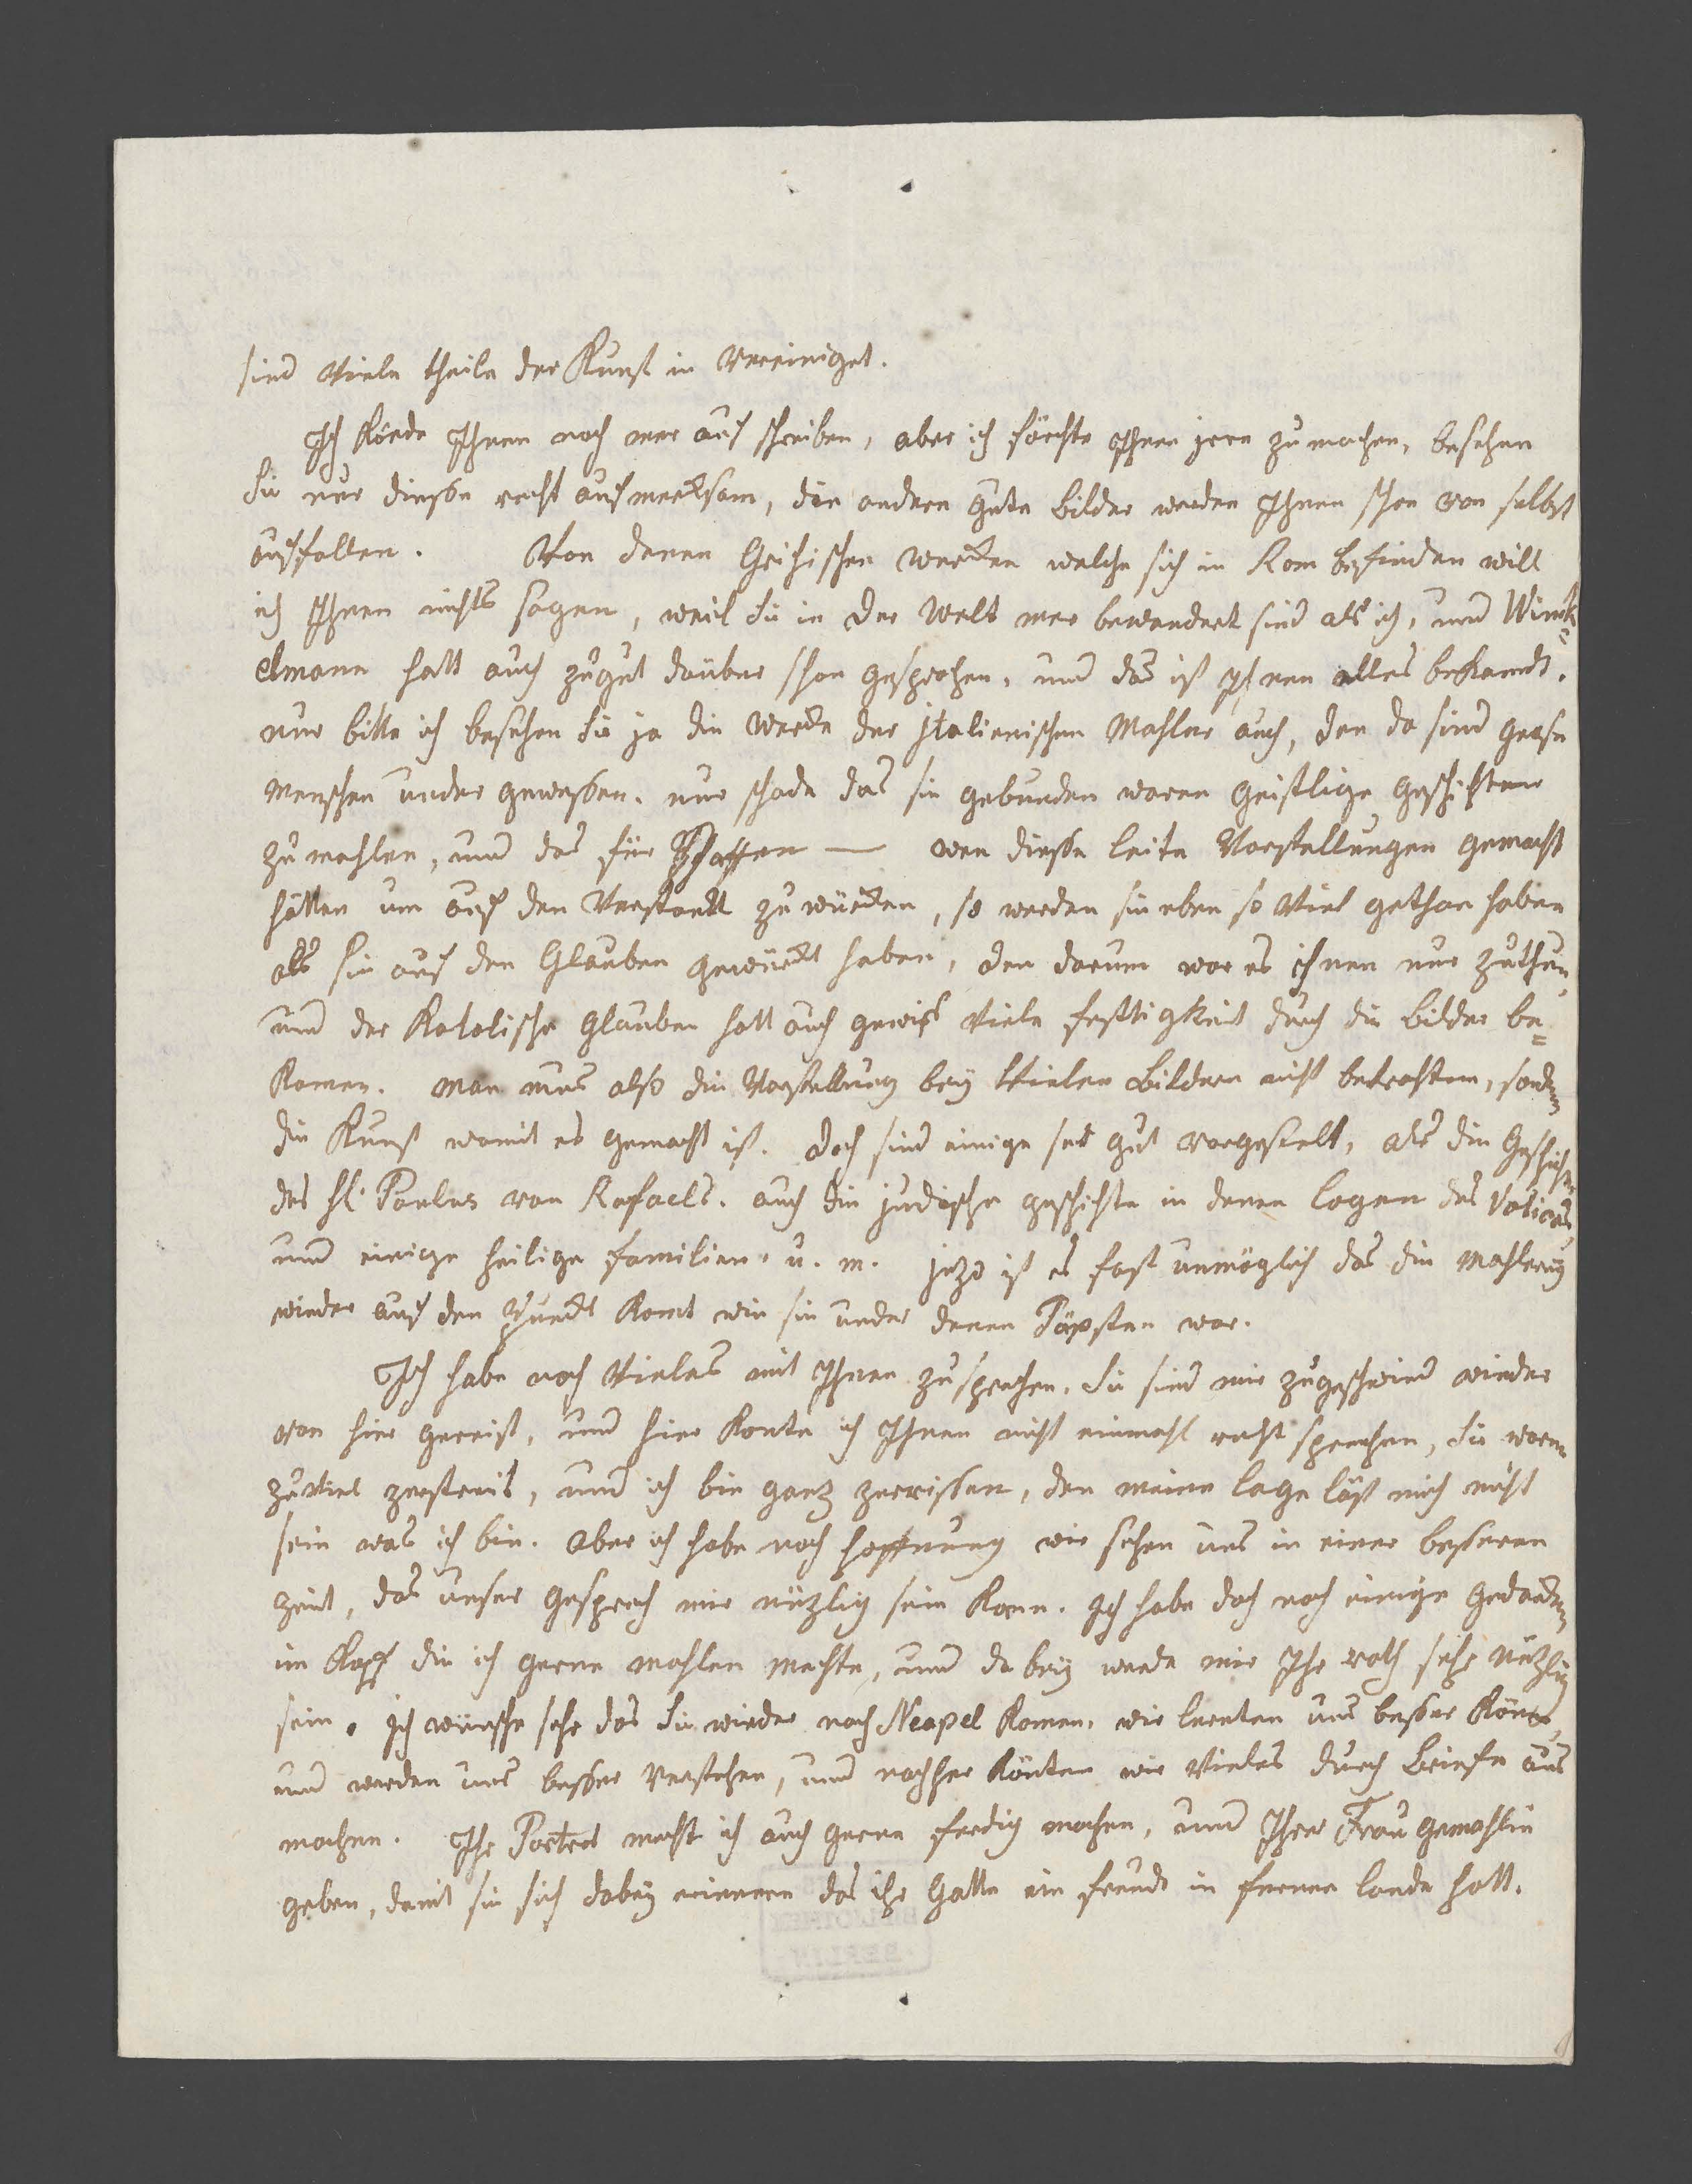 sind Viele theile der Kunst in Vereiniget.
Ich könde Ihnen noch mer auf schreiben, aber ich förchte Ihnen jrre zu machen, besehen
Sie nur diesse recht aufmercksam, die andern gute bilder werden Ihnen schon von selbst
auffallen. Von denen Grichischen wercken welche sich in Rom befinden will
ich Ihnen nichts sagen, weil Sie in der Welt mer bewandert sind als ich, und Winck=
elmann hatt auch zu gut darüber schon gesprochen, und das ist Ihnen alles bekandt.
nur bitte ich besehen Sie ja die wercke der jtalienischen Mahler auch, den da sind grose
menschen under gewessen. nur schade das sie gebunden waren geistlige geschichten
zu mahlen, und das für Pfaffen — wen diesse leite Vorstellungen gemacht
hätten um auf den Verstandt zu würcken, so werden sie eben so Viel gethan haben
als sie auf den Glauben gewürckt haben, den darum war es ihnen nur zuthun,
und der Katolische glauben hatt auch gewiss Viele festigkeit durch die bilder be=
komen. man mus also die Vorstellung bey Vielen bildern nicht betrachten, sondern
die Kunst womit es gemacht ist. doch sind einige ser gut vorgestelt, als die Geschichten
des hl. Paulus von Rafaels. auch die judische geschichte in denen logen des Vaticans,
und einige heilige familien. u. m. jezo ist es fast unmöglich das die mahlerey
wieder auf den Punckt komt wie sie under denen Päpsten war.
Ich habe noch Vieles mit Ihnen zu sprechen, Sie sind mir zugeschwind wieder
von hier gereist, und hier konte ich Ihnen nicht einmahl recht sprechen, Sie waren
zu Viel zerstreit, und ich bin gantz zerrissen, den meine lage läst mich nicht
sein was ich bin. aber ich habe noch hoffnung wir sehen uns in einer besseren
zeit, das unser gesprech mir nüzlig sein kann. Ich habe doch noch einige gedancken
im Kopf die ich gerne mahlen mechte, und da bey werde mir Ihr rath sehr Nüzlig
sein. Ich wünsche sehr das Sie wieder nach Neapel komen. wir lernten uns besser könen,
und werden uns besser Verstehen, und nachher könten wir Vieles durch briefe aus
machen. Ihr Portret mecht ich auch gerne ferdig machen, und Ihrer Frau gemahlin
geben, damit sie sich dabey erinnere das ihr Gatte ein freundt in fernen lande hatt.